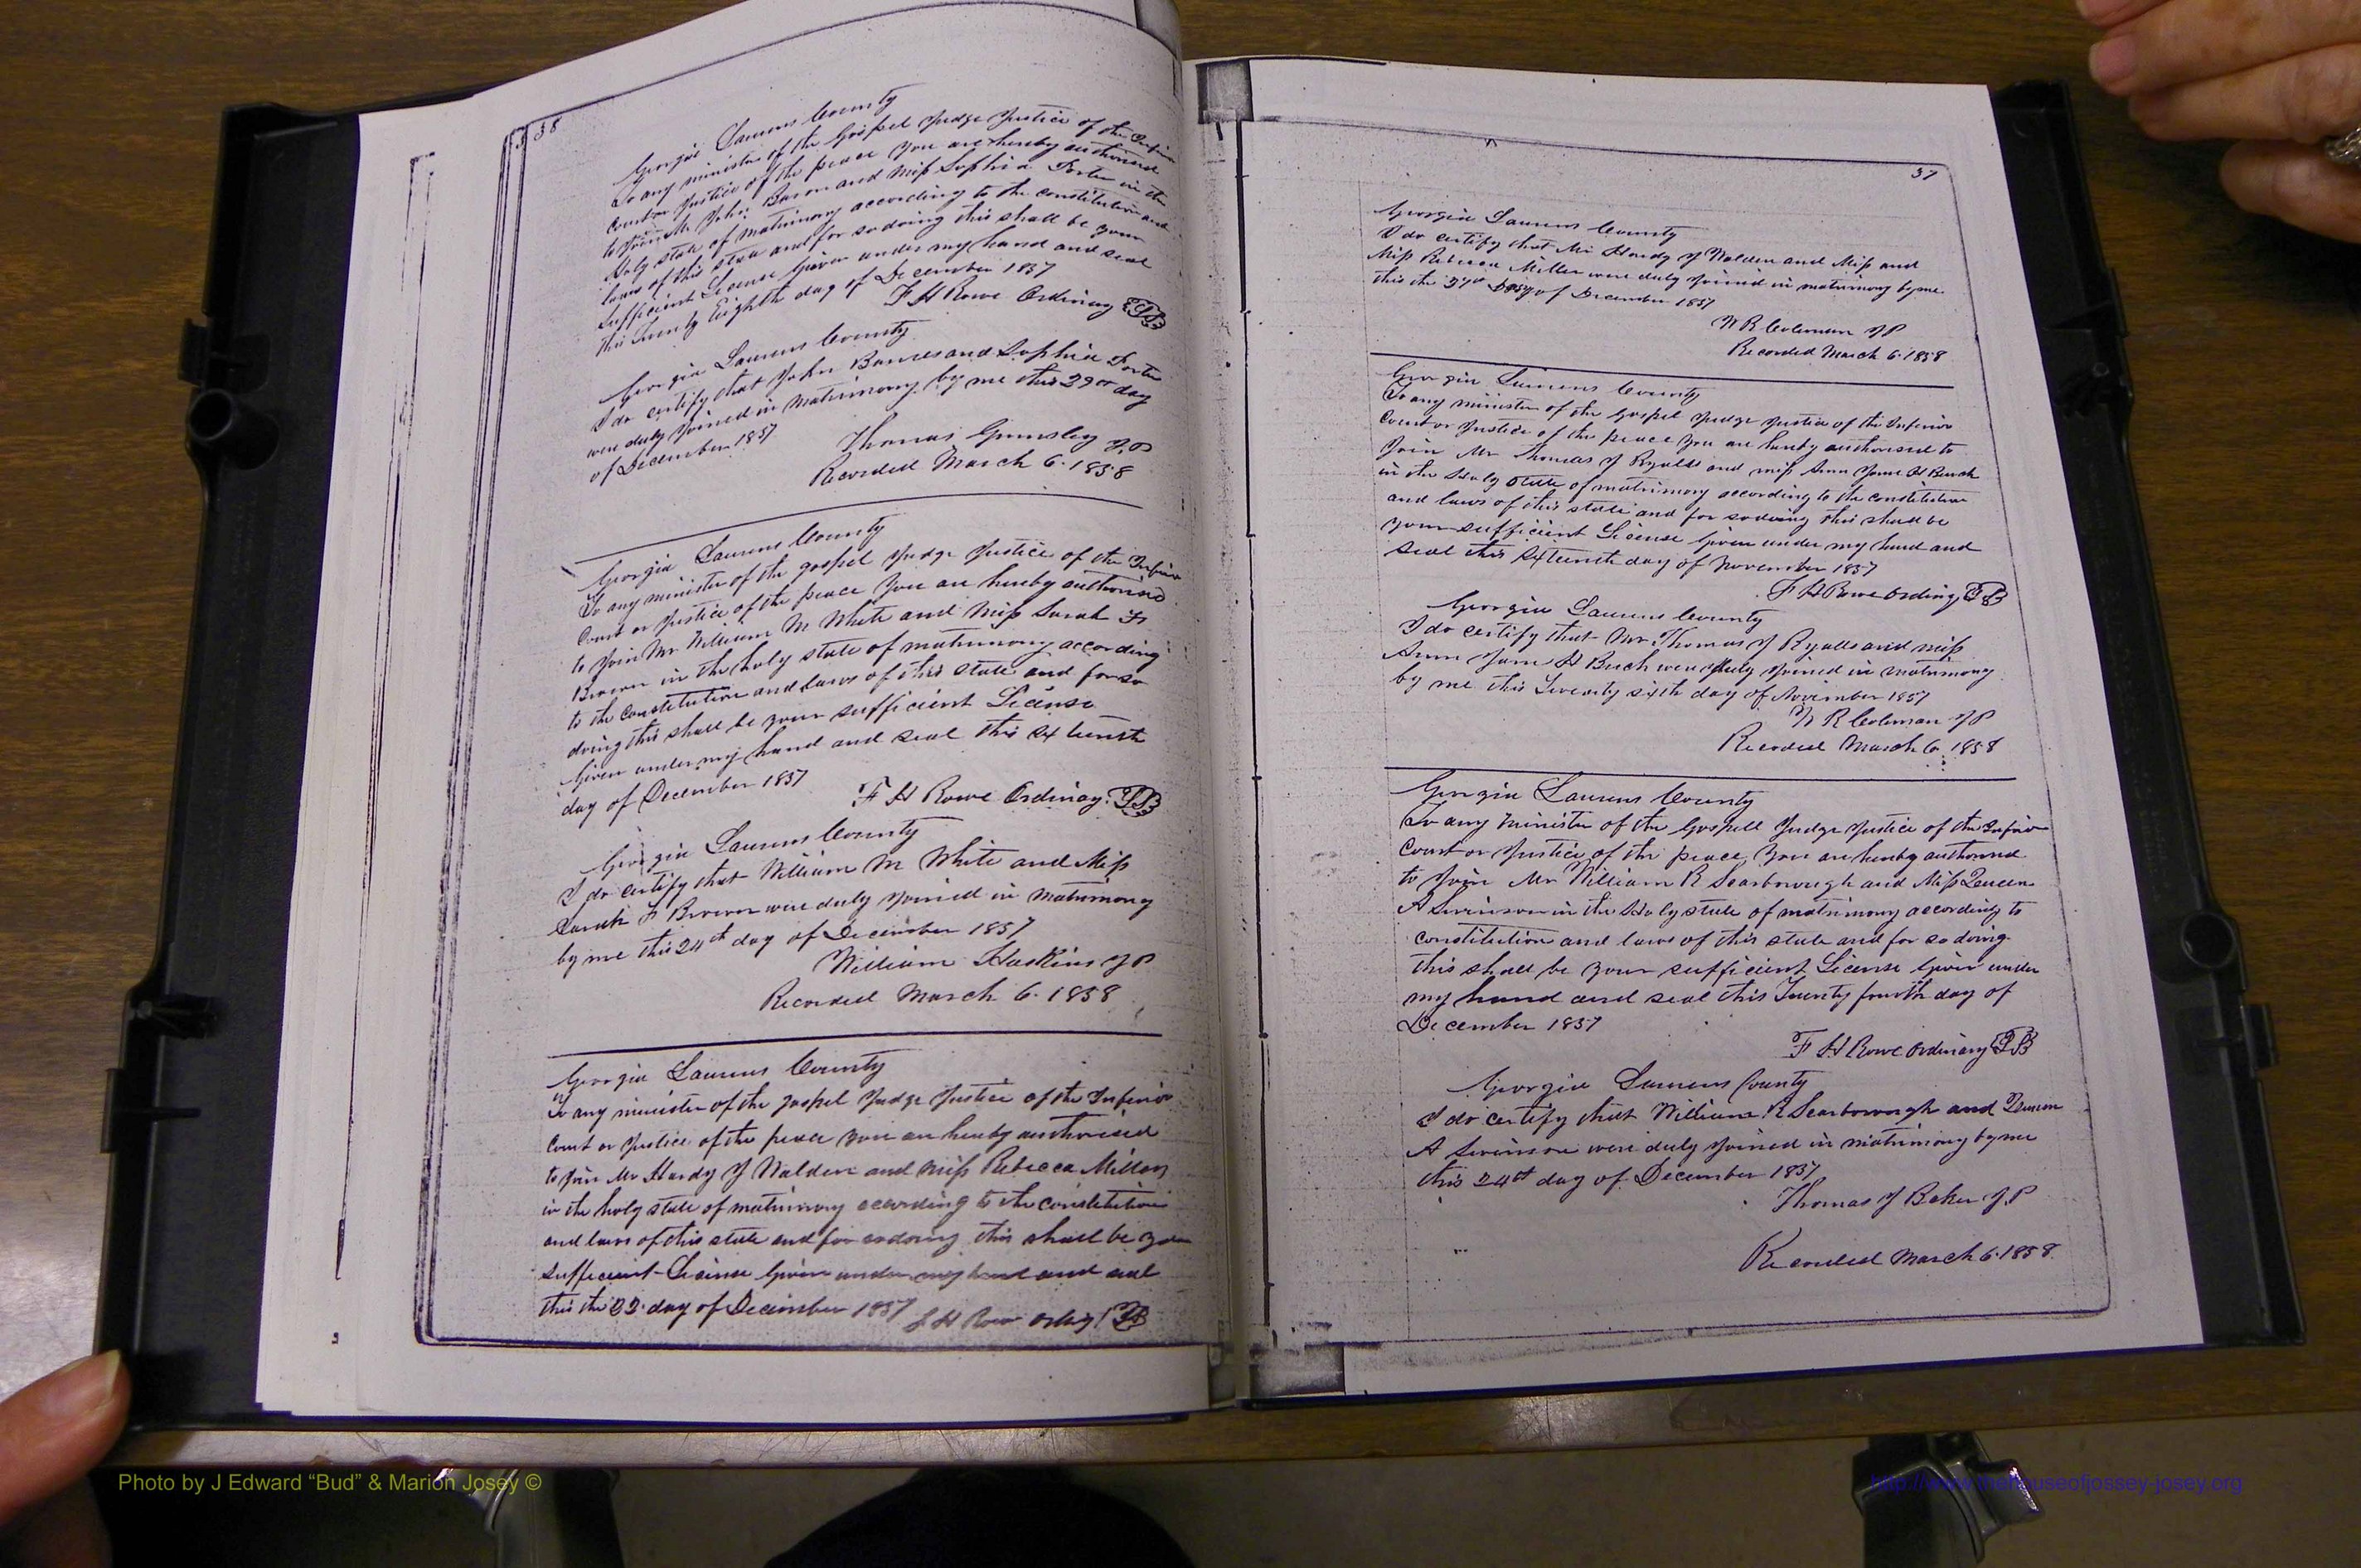 38
Georgia Laurens County
To any minister of the Gospel Judge Justice of the Inferior
Court or Justice of the peace You are hereby authorised
to join Mr John and Miss Sophia Porter in the
Holy state of matrimony according to the constitution and
laws of this state and for so doing this shall be your
sufficient License Given under my hand and seal
this Twenty Eighth day of December 1857
F H Rowe Ordinary
Georgia Laurens County
I do certify that John and Sophia Porter
were duly joined in matrimony by me this 29th day
of December 1857
Thomas Grimsley J.P
Recorded March 6. 1858
Georgia Laurens County
To any minister of the gospel Judge Justice of the Inferior
Court or Justice of the peace You are hereby authorised
to join Mr William M White and Miss Sarah F
Brown in the holy state of matrimony according
to the constitution and laws of this state and for so
doing this shall be your sufficient License
Given under my hand and seal this Sixteenth
day of December 1857
F H Rowe Ordinary
Georgia Laurens County
I do certify that William M White and Miss
Sarah F Brown were duly joined in matrimony
by me this 24th day of December 1857
William Haskins J P
Recorded March 6. 1858
Georgia Laurens County
To any minister of the gospel Judge Justice of the Inferior
Court or Justice of the peace you are hereby authorised
to join Mr Hardy J Walden and miss Rebecca Miller
in the holy state of matrimony according to the constitution
and laws of this state and for so doing this shall be your
sufficient License Given under my hand and seal
this the 22 day of December 1857 F H Rowe
37
Georgia Laurens County
I do certify that Mr Hardy J Walden and Miss and
Miss Rebecca Miller were duly joined in matrimony by me
this the day of December 1857
W R Coleman J P
Recorded March 6. 1858
Georgia Laurens County
To any minister of the Gospel Judge Justice of the Inferior
Court or Justice of the peace You are hereby authorised to
Join Mr Thomas J Ryalls and miss Ann Jane H Burch
in the Holy State of matrimony according to the constitution
and laws of this state and for so doing this shall be
your sufficient License Given under my hand and
seal this Sixteenth day of November 1857
F H Rowe Ordinary
Georgia Laurens County
I do certify that Mr Thomas J Ryalls and miss
Ann Jane H Burch were duly joined in matrimony
by me this Twenty sixth day of November 1857
W R Coleman J P
Recorded March 6. 1858
Georgia Laurens County
To any Minister of the Gospell Judge Justice of the Inferior
Court or Justice of the peace You are hereby authorised
to Join Mr William R Scarborough and Miss
A Swinson in the Holy state of matrimony according to
constitution and laws of this state and for so doing
this shall be your sufficient License Given under
my hand and seal this Twenty fourth day of
December 1857
F H Rowe Ordinary
Georgia Laurens County
I do certify that William R Scarborough and
A Swinson were duly joined in matrimony by me
this 24th day of December 1857
Thomas J Baker J.P
Recorded March 6. 1858
Photo by J Edward “Bud” & Marion Josey ©
http://www.thehouseofjossey-josey.org